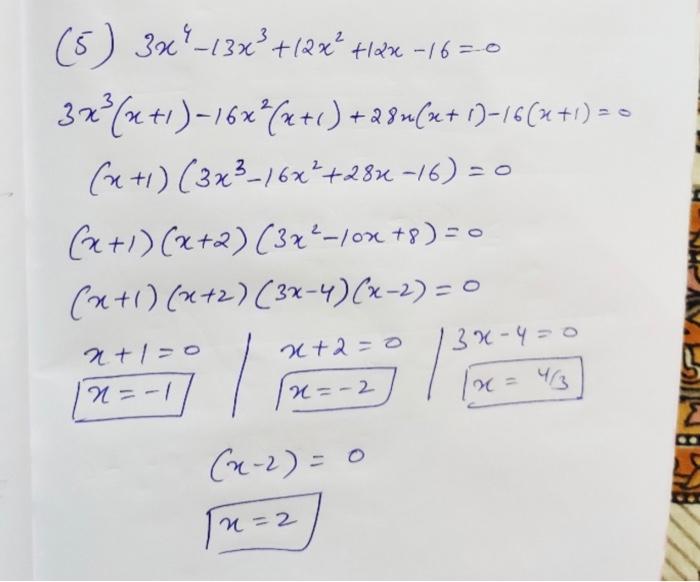 (5) 3x⁴-13x³+12x²+12x-16=0
3x³(x+1)-16x²(x+1)+28x(x+1)-16(x+1)=0
(x+1)(3x³-16x²+28x-16)=0
(x+1)(x+2)(3x²-10x+8)=0
(x+1)(x+2)(3x-4)(x-2)=0
x+1=0 | x+2=0 | 3x-4=0
x=-1 | x=-2 | x=4/3
(x-2)=0
x=2